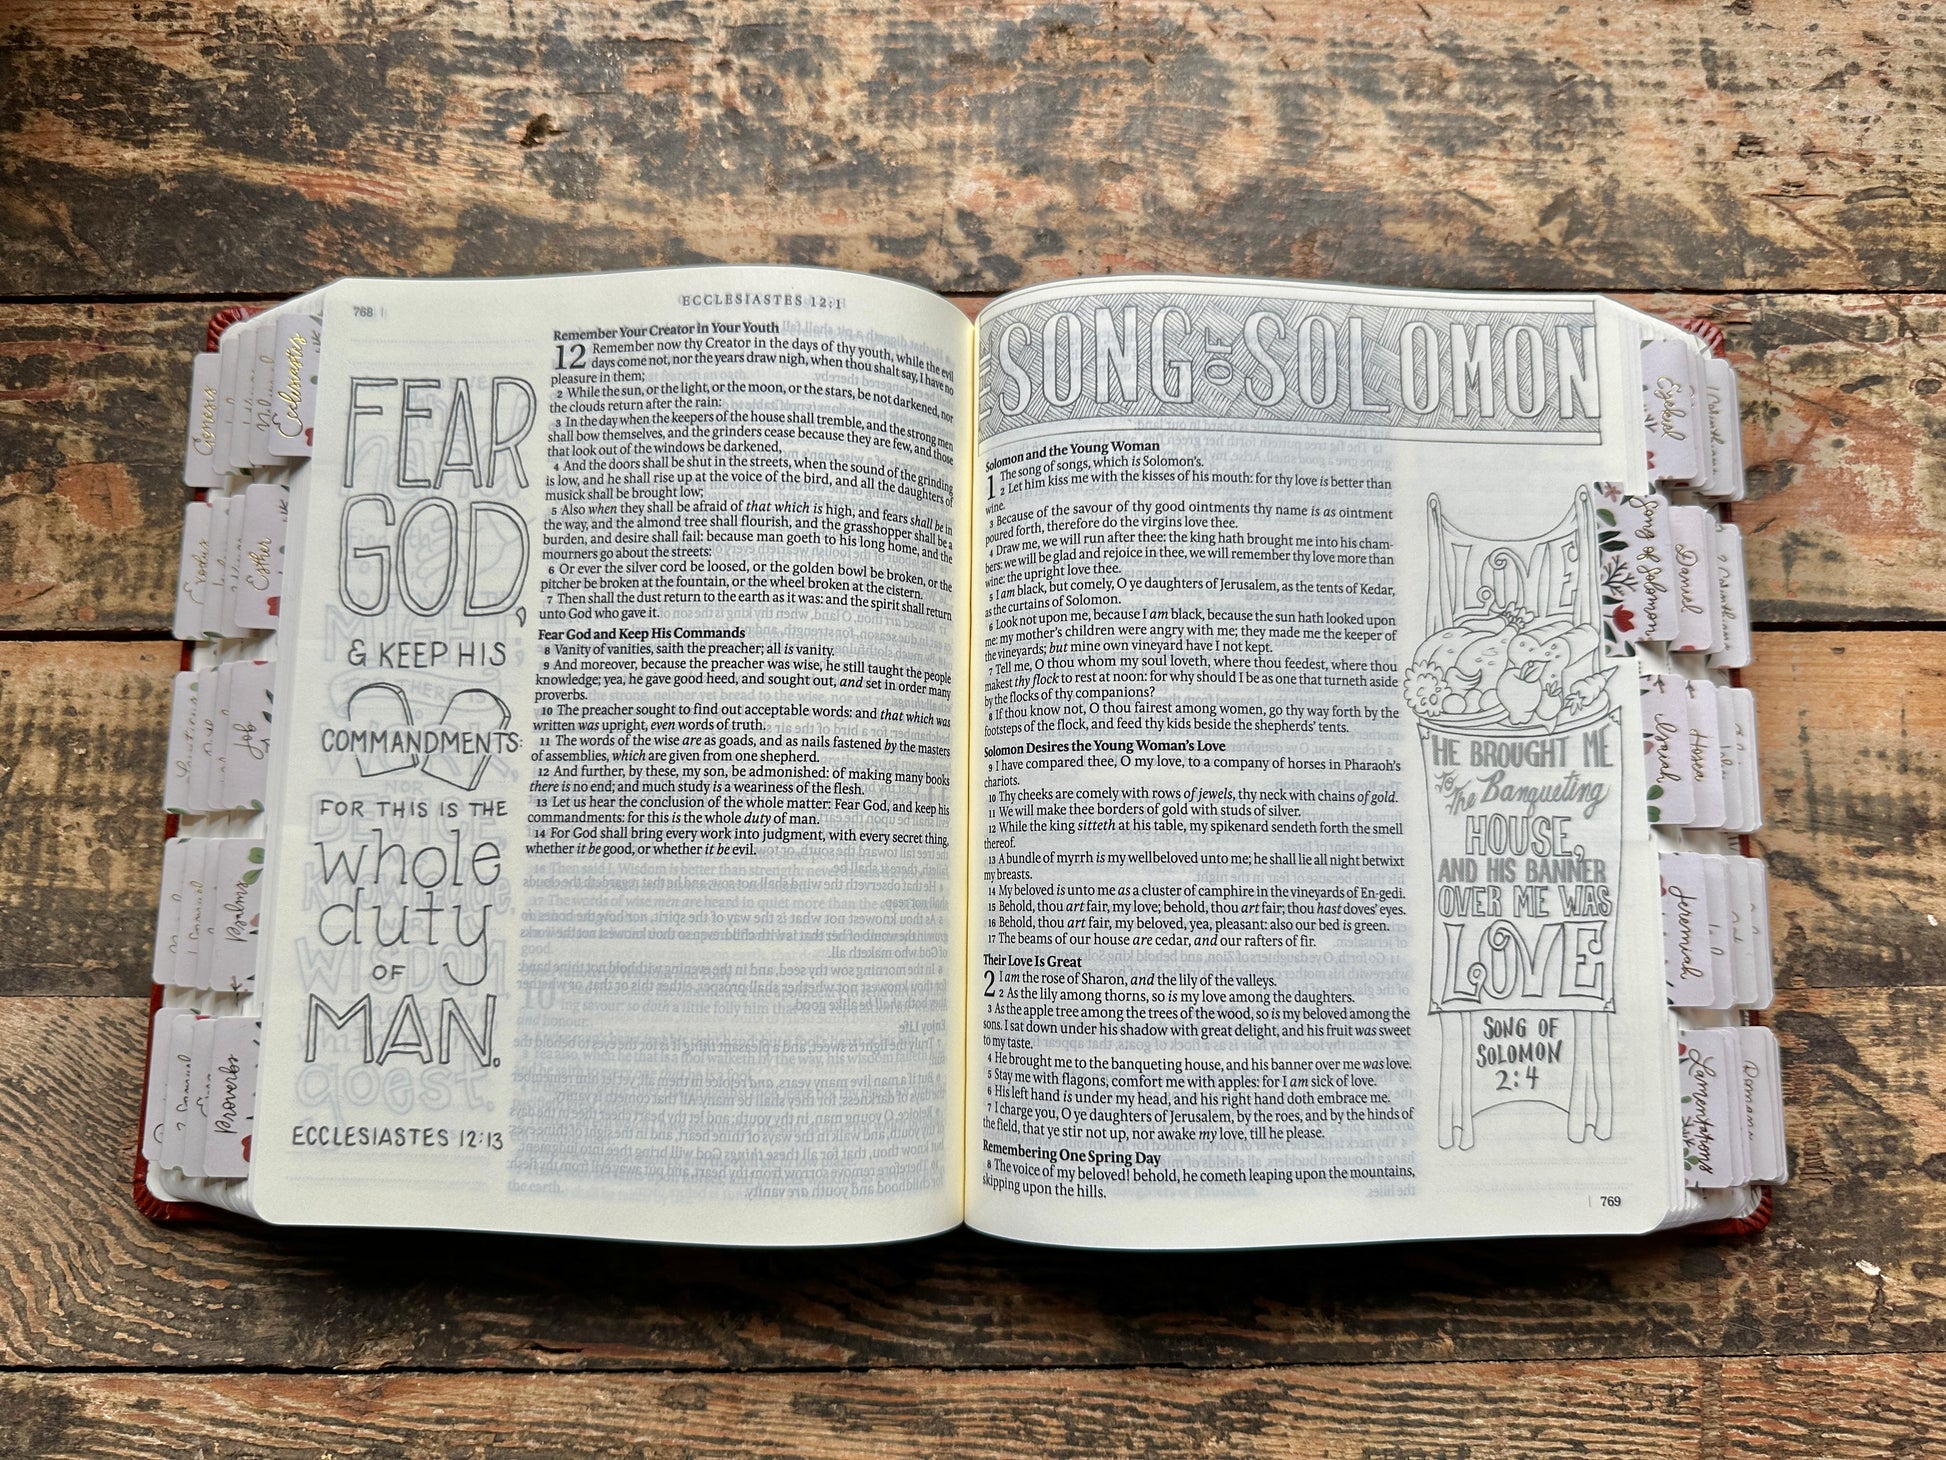 768
ECCLESIASTES 12:1
FEAR
GOD,
& KEEP HIS
COMMANDMENTS:
FOR THIS IS THE
whole
duty
OF
MAN.
ECCLESIASTES 12:13
Remember Your Creator in Your Youth
12 Remember now thy Creator in the days of thy youth, while the evil
days come not, nor the years draw nigh, when thou shalt say, I have no
pleasure in them;
2 While the sun, or the light, or the moon, or the stars, be not darkened, nor
the clouds return after the rain:
3 In the day when the keepers of the house shall tremble, and the strong men
shall bow themselves, and the grinders cease because they are few, and those
that look out of the windows be darkened,
4 And the doors shall be shut in the streets, when the sound of the grinding
is low, and he shall rise up at the voice of the bird, and all the daughters of
musick shall be brought low;
5 Also when they shall be afraid of that which is high, and fears shall be in
the way, and the almond tree shall flourish, and the grasshopper shall be a
burden, and desire shall fail: because man goeth to his long home, and the
mourners go about the streets:
6 Or ever the silver cord be loosed, or the golden bowl be broken, or the
pitcher be broken at the fountain, or the wheel broken at the cistern.
7 Then shall the dust return to the earth as it was: and the spirit shall return
unto God who gave it.
Fear God and Keep His Commands
8 Vanity of vanities, saith the preacher; all is vanity.
9 And moreover, because the preacher was wise, he still taught the people
knowledge; yea, he gave good heed, and sought out, and set in order many
proverbs.
10 The preacher sought to find out acceptable words: and that which was
written was upright, even words of truth.
11 The words of the wise are as goads, and as nails fastened by the masters
of assemblies, which are given from one shepherd.
12 And further, by these, my son, be admonished: of making many books
there is no end; and much study is a weariness of the flesh.
13 Let us hear the conclusion of the whole matter: Fear God, and keep his
commandments: for this is the whole duty of man.
14 For God shall bring every work into judgment, with every secret thing,
whether it be good, or whether it be evil.
THE SONG OF SOLOMON
Solomon and the Young Woman
1 The song of songs, which is Solomon's.
2 Let him kiss me with the kisses of his mouth: for thy love is better than
wine.
3 Because of the savour of thy good ointments thy name is as ointment
poured forth, therefore do the virgins love thee.
4 Draw me, we will run after thee: the king hath brought me into his cham-
bers: we will be glad and rejoice in thee, we will remember thy love more than
wine: the upright love thee.
5 I am black, but comely, O ye daughters of Jerusalem, as the tents of Kedar,
as the curtains of Solomon.
6 Look not upon me, because I am black, because the sun hath looked upon
me: my mother's children were angry with me; they made me the keeper of
the vineyards; but mine own vineyard have I not kept.
7 Tell me, O thou whom my soul loveth, where thou feedest, where thou
makest thy flock to rest at noon: for why should I be as one that turneth aside
by the flocks of thy companions?
8 If thou know not, O thou fairest among women, go thy way forth by the
footsteps of the flock, and feed thy kids beside the shepherds' tents.
Solomon Desires the Young Woman's Love
9 I have compared thee, O my love, to a company of horses in Pharaoh's
chariots.
10 Thy cheeks are comely with rows of jewels, thy neck with chains of gold.
11 We will make thee borders of gold with studs of silver.
12 While the king sitteth at his table, my spikenard sendeth forth the smell
thereof.
13 A bundle of myrrh is my wellbeloved unto me; he shall lie all night betwixt
my breasts.
14 My beloved is unto me as a cluster of camphire in the vineyards of En-gedi.
15 Behold, thou art fair, my love; behold, thou art fair; thou hast doves' eyes.
16 Behold, thou art fair, my beloved, yea, pleasant: also our bed is green.
17 The beams of our house are cedar, and our rafters of fir.
Their Love Is Great
2 I am the rose of Sharon, and the lily of the valleys.
2 As the lily among thorns, so is my love among the daughters.
3 As the apple tree among the trees of the wood, so is my beloved among the
sons. I sat down under his shadow with great delight, and his fruit was sweet
to my taste.
4 He brought me to the banqueting house, and his banner over me was love.
5 Stay me with flagons, comfort me with apples: for I am sick of love.
6 His left hand is under my head, and his right hand doth embrace me.
7 I charge you, O ye daughters of Jerusalem, by the roes, and by the hinds of
the field, that ye stir not up, nor awake my love, till he please.
Remembering One Spring Day
8 The voice of my beloved! behold, he cometh leaping upon the mountains,
skipping upon the hills.
LOVE
HE BROUGHT ME
To The Banqueting
HOUSE,
AND HIS BANNER
OVER ME WAS
LOVE
SONG OF
SOLOMON
2:4
769
Genesis
Ecclesiastes
Exodus
Esther
Job
Psalms
Proverbs
Ezekiel
Song of Solomon
Daniel
Isaiah
Hosea
Jeremiah
Lamentations
Romans